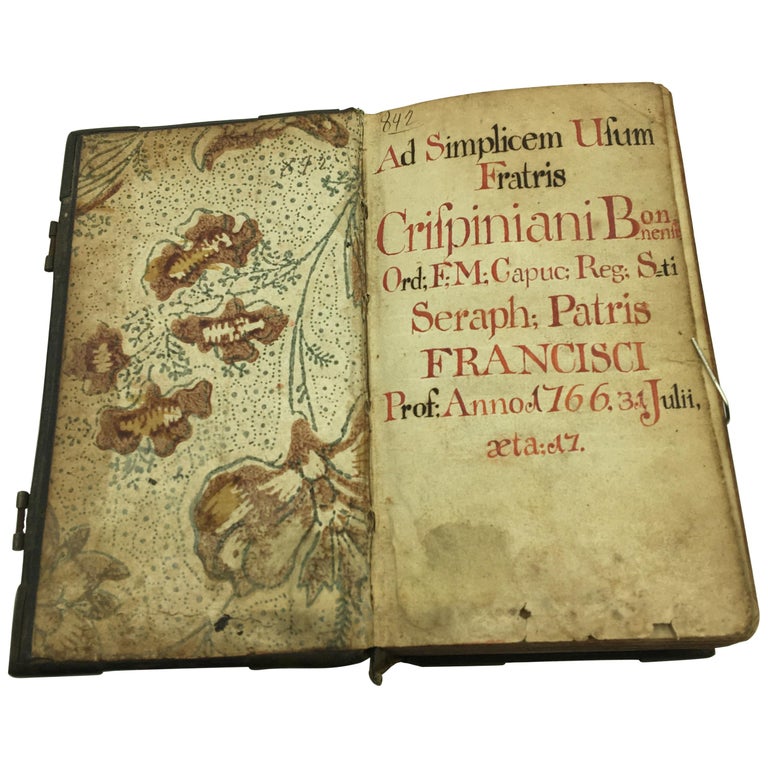 842
842
Ad Simplicem Uſum
Fratris
Criſpiniani Bon=
nenſis
Ord; F; M; Capuc; Reg; S=ti
Seraph; Patris
FRANCISCI
Prof: Anno 1766. 31 Julii,
æta: 17.